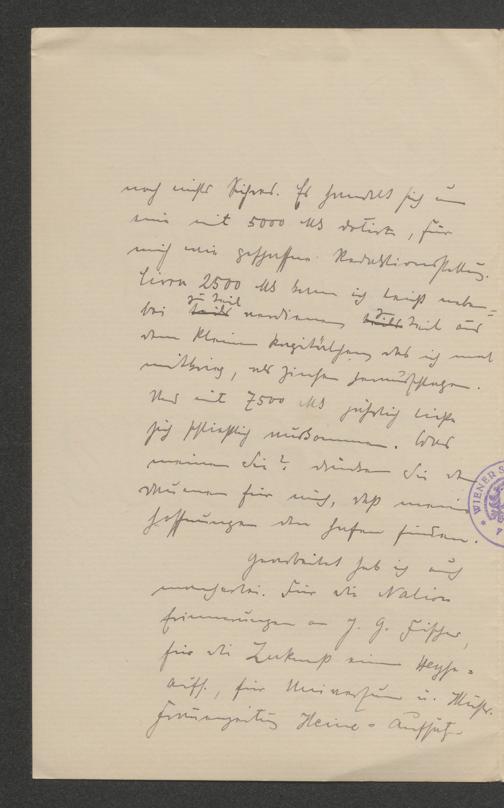 noch nichts Sicheres. Es handelt sich um
eine mit 5000 Mk dotirte, für
mich wie geschaffene Redaktionsstellung.
Circa 2500 Mk kann ich leicht neben=
bei zu Teil verdienen, zu Teil aus
dem kleinen Kapitälchen, das ich mal
mitkrieg, als Zinsen herausschlagen.
Und mit 7500 Mk jährlich ließe
sich schließlich auskommen. Was
meinen Sie? Drücken Sie den
Daumen für mich, daß meine
Hoffnungen den Hafen finden.
Gearbeitet hab ich auch
mancherlei. Für die Nation
Erinnerungen an J. G. Fischer,
für die Zukunft einen Heyse=
aufs., für Universum u. Illustr.
Frauenzeitung Heine=Aufsätze
WIENER S